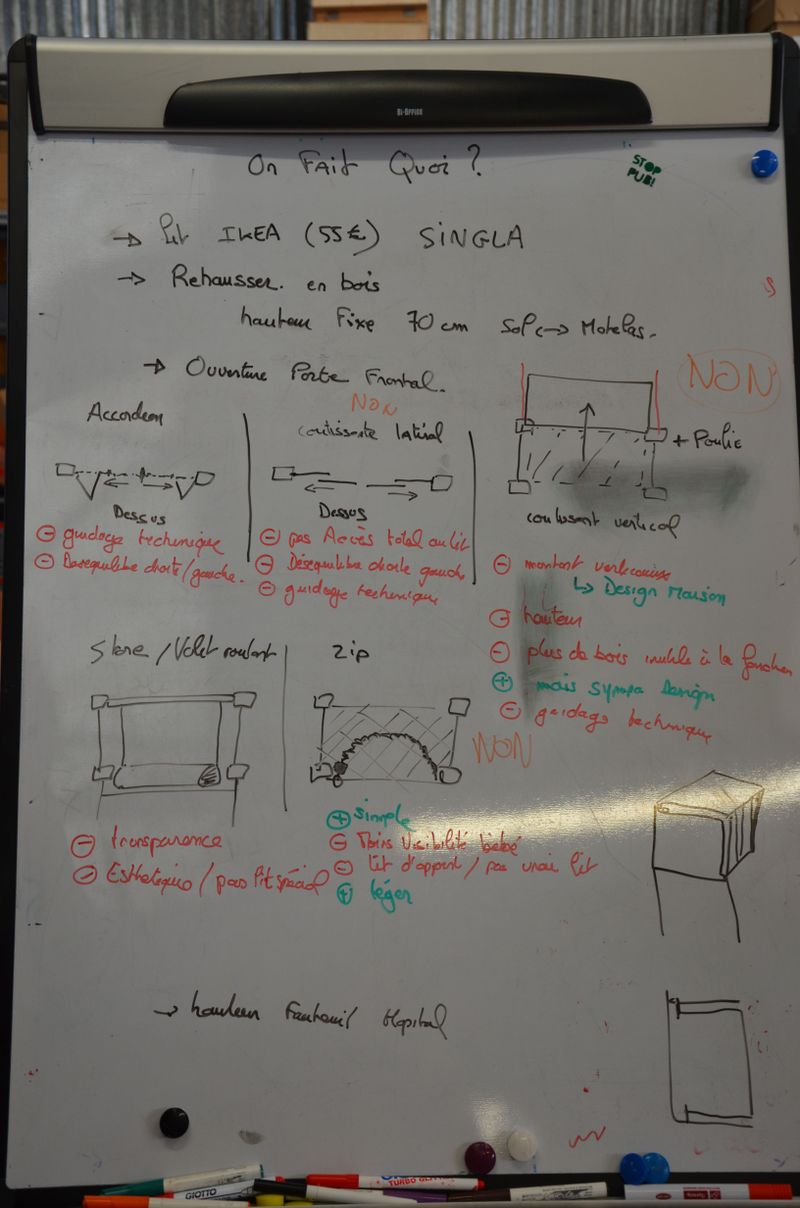 BI-OFFICE
On Fait Quoi ?
STOP
PUB!
→ lit IKEA (55€) SINGLA
→ Rehausser. en bois
hauteur Fixe 70 cm Sol ←→ Matelas.
→ Ouverture Porte Frontal.
NON
Accordeon
Dessus
⊖ guidage technique
⊖ Desequilibe droite/gauche.
NON
coulissante latéral
Dessus
⊖ pas Accès total au lit
⊖ Déséquilibe droite gauche
⊖ guidage technique
+ Poulie
coulissant vertical
⊖ montant verticaux
↳ Design Maison
⊖ hauteur
⊖ plus de bois inutile à la fonction
⊕ mais sympa Design
⊖ guidage technique
Store / Volet roulant
⊖ transparence
⊖ Esthetique / pas lit spécial
zip
NON
⊕ simple
⊖ Moins visibilité bébé
⊖ lit d'appoint / pas vrai lit
⊕ léger
→ hauteur Fauteuil Hopital
GIOTTO
TURBO